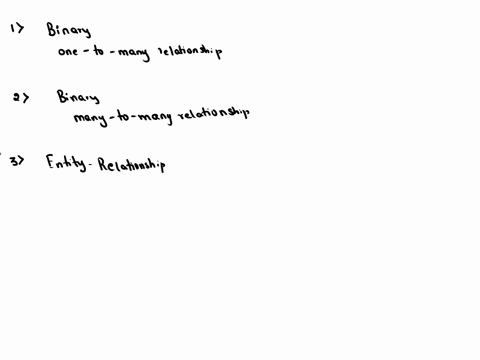 1> Binary
one-to-many relationship
2> Binary
many-to-many relationship
3> Entity-Relationship